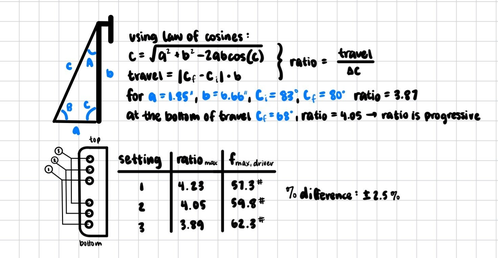 using law of cosines:
c = √a² + b² - 2abcos(c)
travel = |Cf - Ci| · b
} ratio = travel / Δc
for a = 1.85", b = 6.66", Ci = 83°, Cf = 80° ratio = 3.87
at the bottom of travel Cf = 68°, ratio = 4.05 → ratio is progressive
A
c
b
B
C
a
top
1
2
3
bottom
setting | ratio max | f max, driver
1 | 4.23 | 57.3#
2 | 4.05 | 59.8#
3 | 3.89 | 62.3#
% difference: ± 2.5%